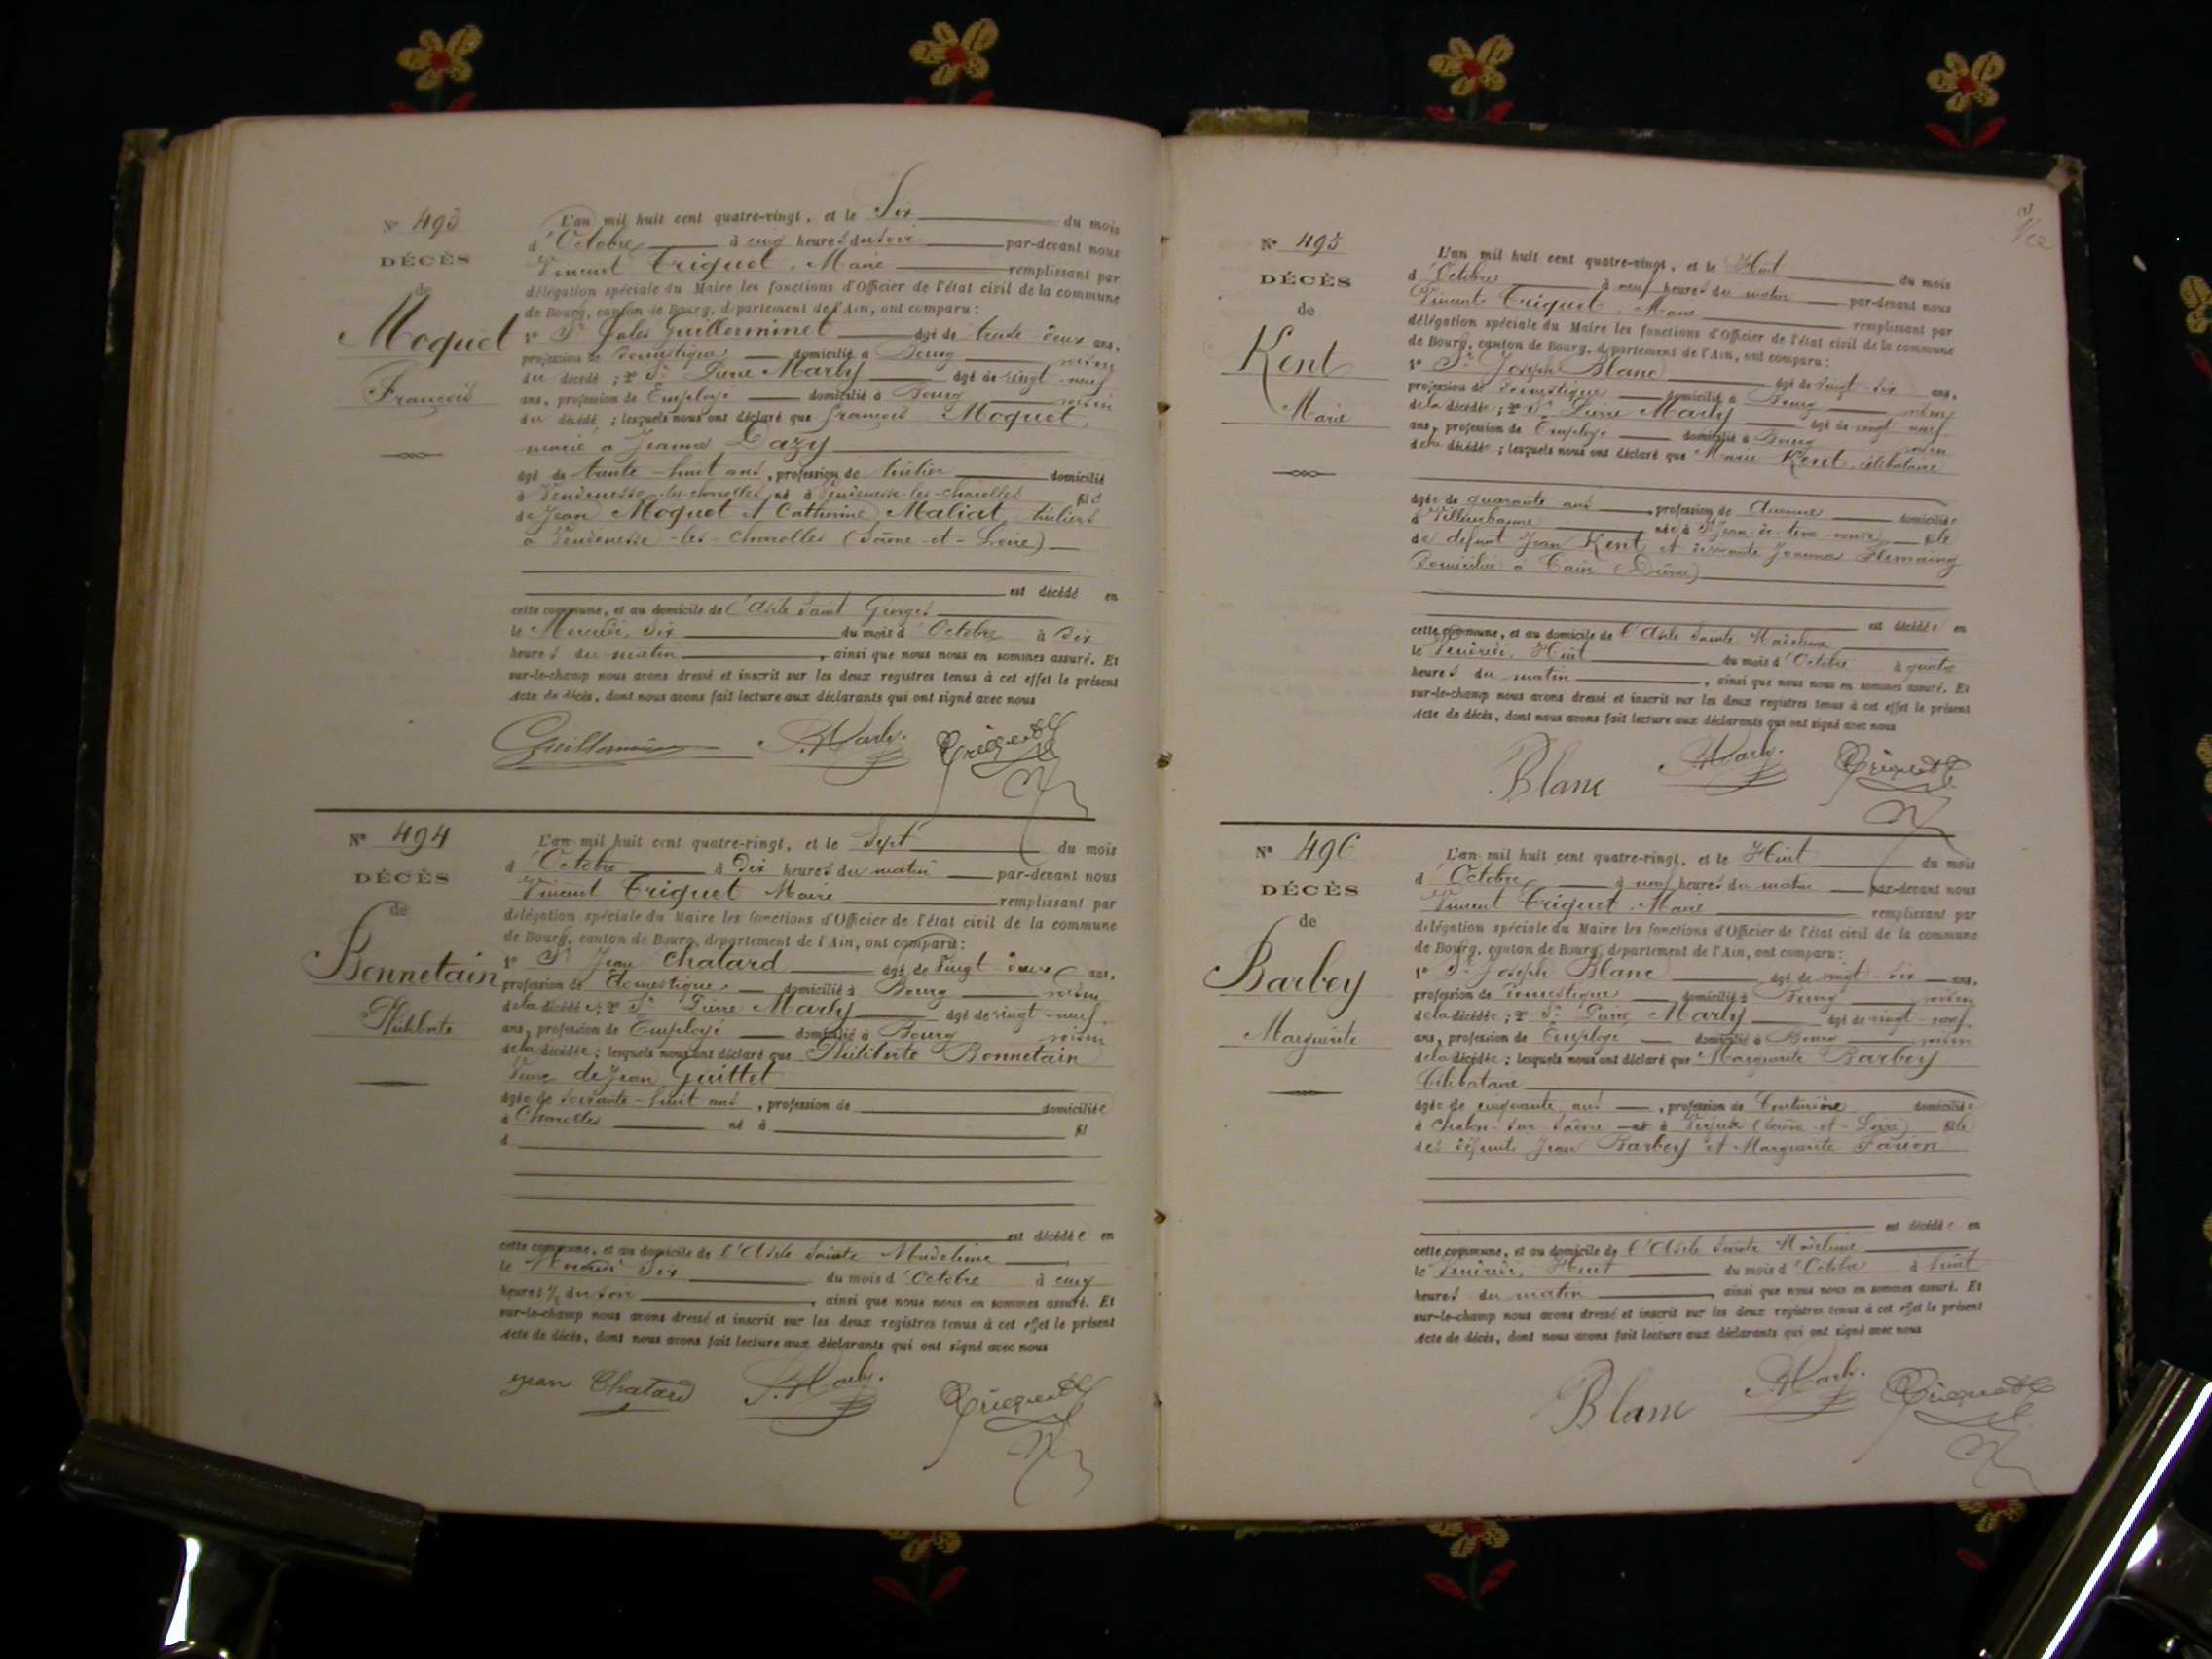 N° 493
DÉCÈS
de
Moquet
François
L'an mil huit cent quatre-vingt, et le Six du mois
d'Octobre à cinq heures du soir par-devant nous
Vincent Triquet, Maire remplissant par
délégation spéciale du Maire les fonctions d'Officier de l'état civil de la commune
de Bourg, canton de Bourg, département de l'Ain, ont comparu :
1° Sr Jules Guillerminet âgé de trente-deux ans,
profession de domestique domicilié à Bourg voisin
du décédé ; 2° Sr Pierre Marly âgé de vingt-neuf
ans, profession de Employé domicilié à Bourg voisin
du décédé ; lesquels nous ont déclaré que François Moquet,
marié à Jeanne Dazy
âgé de trente-huit ans, profession de tuilier domicilié
à Vendenesse-les-charolles né à Vendenesse-les-charolles fils
de Jean Moquet et Catherine Maliat tuiliers
à Vendenesse-les-Charolles (Saône-et-Loire)
est décédé en
cette commune, et au domicile de l'Asile Saint Georges
le Mercredi, six du mois d'Octobre à dix
heures du matin, ainsi que nous nous en sommes assuré. Et
sur-le-champ nous avons dressé et inscrit sur les deux registres tenus à cet effet le présent
Acte de décès, dont nous avons fait lecture aux déclarants qui ont signé avec nous
Guillerminet P. Marly. Triquet
N° 494
DÉCÈS
de
Bonnetain
Philiberte
L'an mil huit cent quatre-vingt, et le Sept du mois
d'Octobre à Dix heures du matin par-devant nous
Vincent Triquet Maire remplissant par
délégation spéciale du Maire les fonctions d'Officier de l'état civil de la commune
de Bourg, canton de Bourg, département de l'Ain, ont comparu :
1° Sr Jean Chatard âgé de Vingt-deux ans,
profession de domestique domicilié à Bourg voisin
de la décédée ; 2° Sr Pierre Marly âgé de vingt-neuf
ans, profession de Employé domicilié à Bourg voisin
de la décédée ; lesquels nous ont déclaré que Philiberte Bonnetain
Veuve de Jean Guittet
âgée de soixante-huit ans, profession de domiciliée
à Charolles né à fil
d
est décédée en
cette commune, et au domicile de l'Asile Sainte Madeleine
le Mercredi Six du mois d'Octobre à cinq
heures ½ du soir, ainsi que nous nous en sommes assuré. Et
sur-le-champ nous avons dressé et inscrit sur les deux registres tenus à cet effet le présent
Acte de décès, dont nous avons fait lecture aux déclarants qui ont signé avec nous
Jean Chatard P. Marly. Triquet
N° 495
DÉCÈS
de
Kent
Marie
L'an mil huit cent quatre-vingt, et le Huit du mois
d'Octobre à neuf heures du matin par-devant nous
Vincent Triquet, Maire remplissant par
délégation spéciale du Maire les fonctions d'Officier de l'état civil de la commune
de Bourg, canton de Bourg, département de l'Ain, ont comparu :
1° Sr Joseph Blanc âgé de vingt-six ans,
profession de domestique domicilié à Bourg voisin
de la décédée ; 2° Sr Pierre Marly âgé de vingt-neuf
ans, profession de Employé domicilié à Bourg voisin
de la décédée ; lesquels nous ont déclaré que Marie Kent, célibataire
âgée de quarante ans, profession de domiciliée
à Villeurbanne née à St Jean-de-terre-neuve fille
de défunt Jean Kent et Jeanne Flemaing
Domiciliée à Tain (Drôme)
est décédée en
cette commune, et au domicile de l'Asile Sainte Madeleine
le Vendredi, Huit du mois d'Octobre à quatre
heures du matin, ainsi que nous nous en sommes assuré. Et
sur-le-champ nous avons dressé et inscrit sur les deux registres tenus à cet effet le présent
Acte de décès, dont nous avons fait lecture aux déclarants qui ont signé avec nous
Blanc P. Marly. Triquet
N° 496
DÉCÈS
de
Barbey
Marguerite
L'an mil huit cent quatre-vingt, et le Huit du mois
d'Octobre à neuf heures du matin par-devant nous
Vincent Triquet, Maire remplissant par
délégation spéciale du Maire les fonctions d'Officier de l'état civil de la commune
de Bourg, canton de Bourg, département de l'Ain, ont comparu :
1° Sr Joseph Blanc âgé de vingt-six ans,
profession de domestique domicilié à Bourg voisin
de la décédée ; 2° Sr Pierre Marly âgé de vingt-neuf
ans, profession de Employé domicilié à Bourg voisin
de la décédée ; lesquels nous ont déclaré que Marguerite Barbey
Célibataire
âgée de cinquante ans, profession de Couturière domiciliée
à Chalon-sur-Saône né à Verjux (Saône-et-Loire) fille
des défunts Jean Barbey et Marguerite Farion
est décédée en
cette commune, et au domicile de l'Asile Sainte Madeleine
le Vendredi, Huit du mois d'Octobre à huit
heures du matin, ainsi que nous nous en sommes assuré. Et
sur-le-champ nous avons dressé et inscrit sur les deux registres tenus à cet effet le présent
Acte de décès, dont nous avons fait lecture aux déclarants qui ont signé avec nous
Blanc P. Marly. Triquet